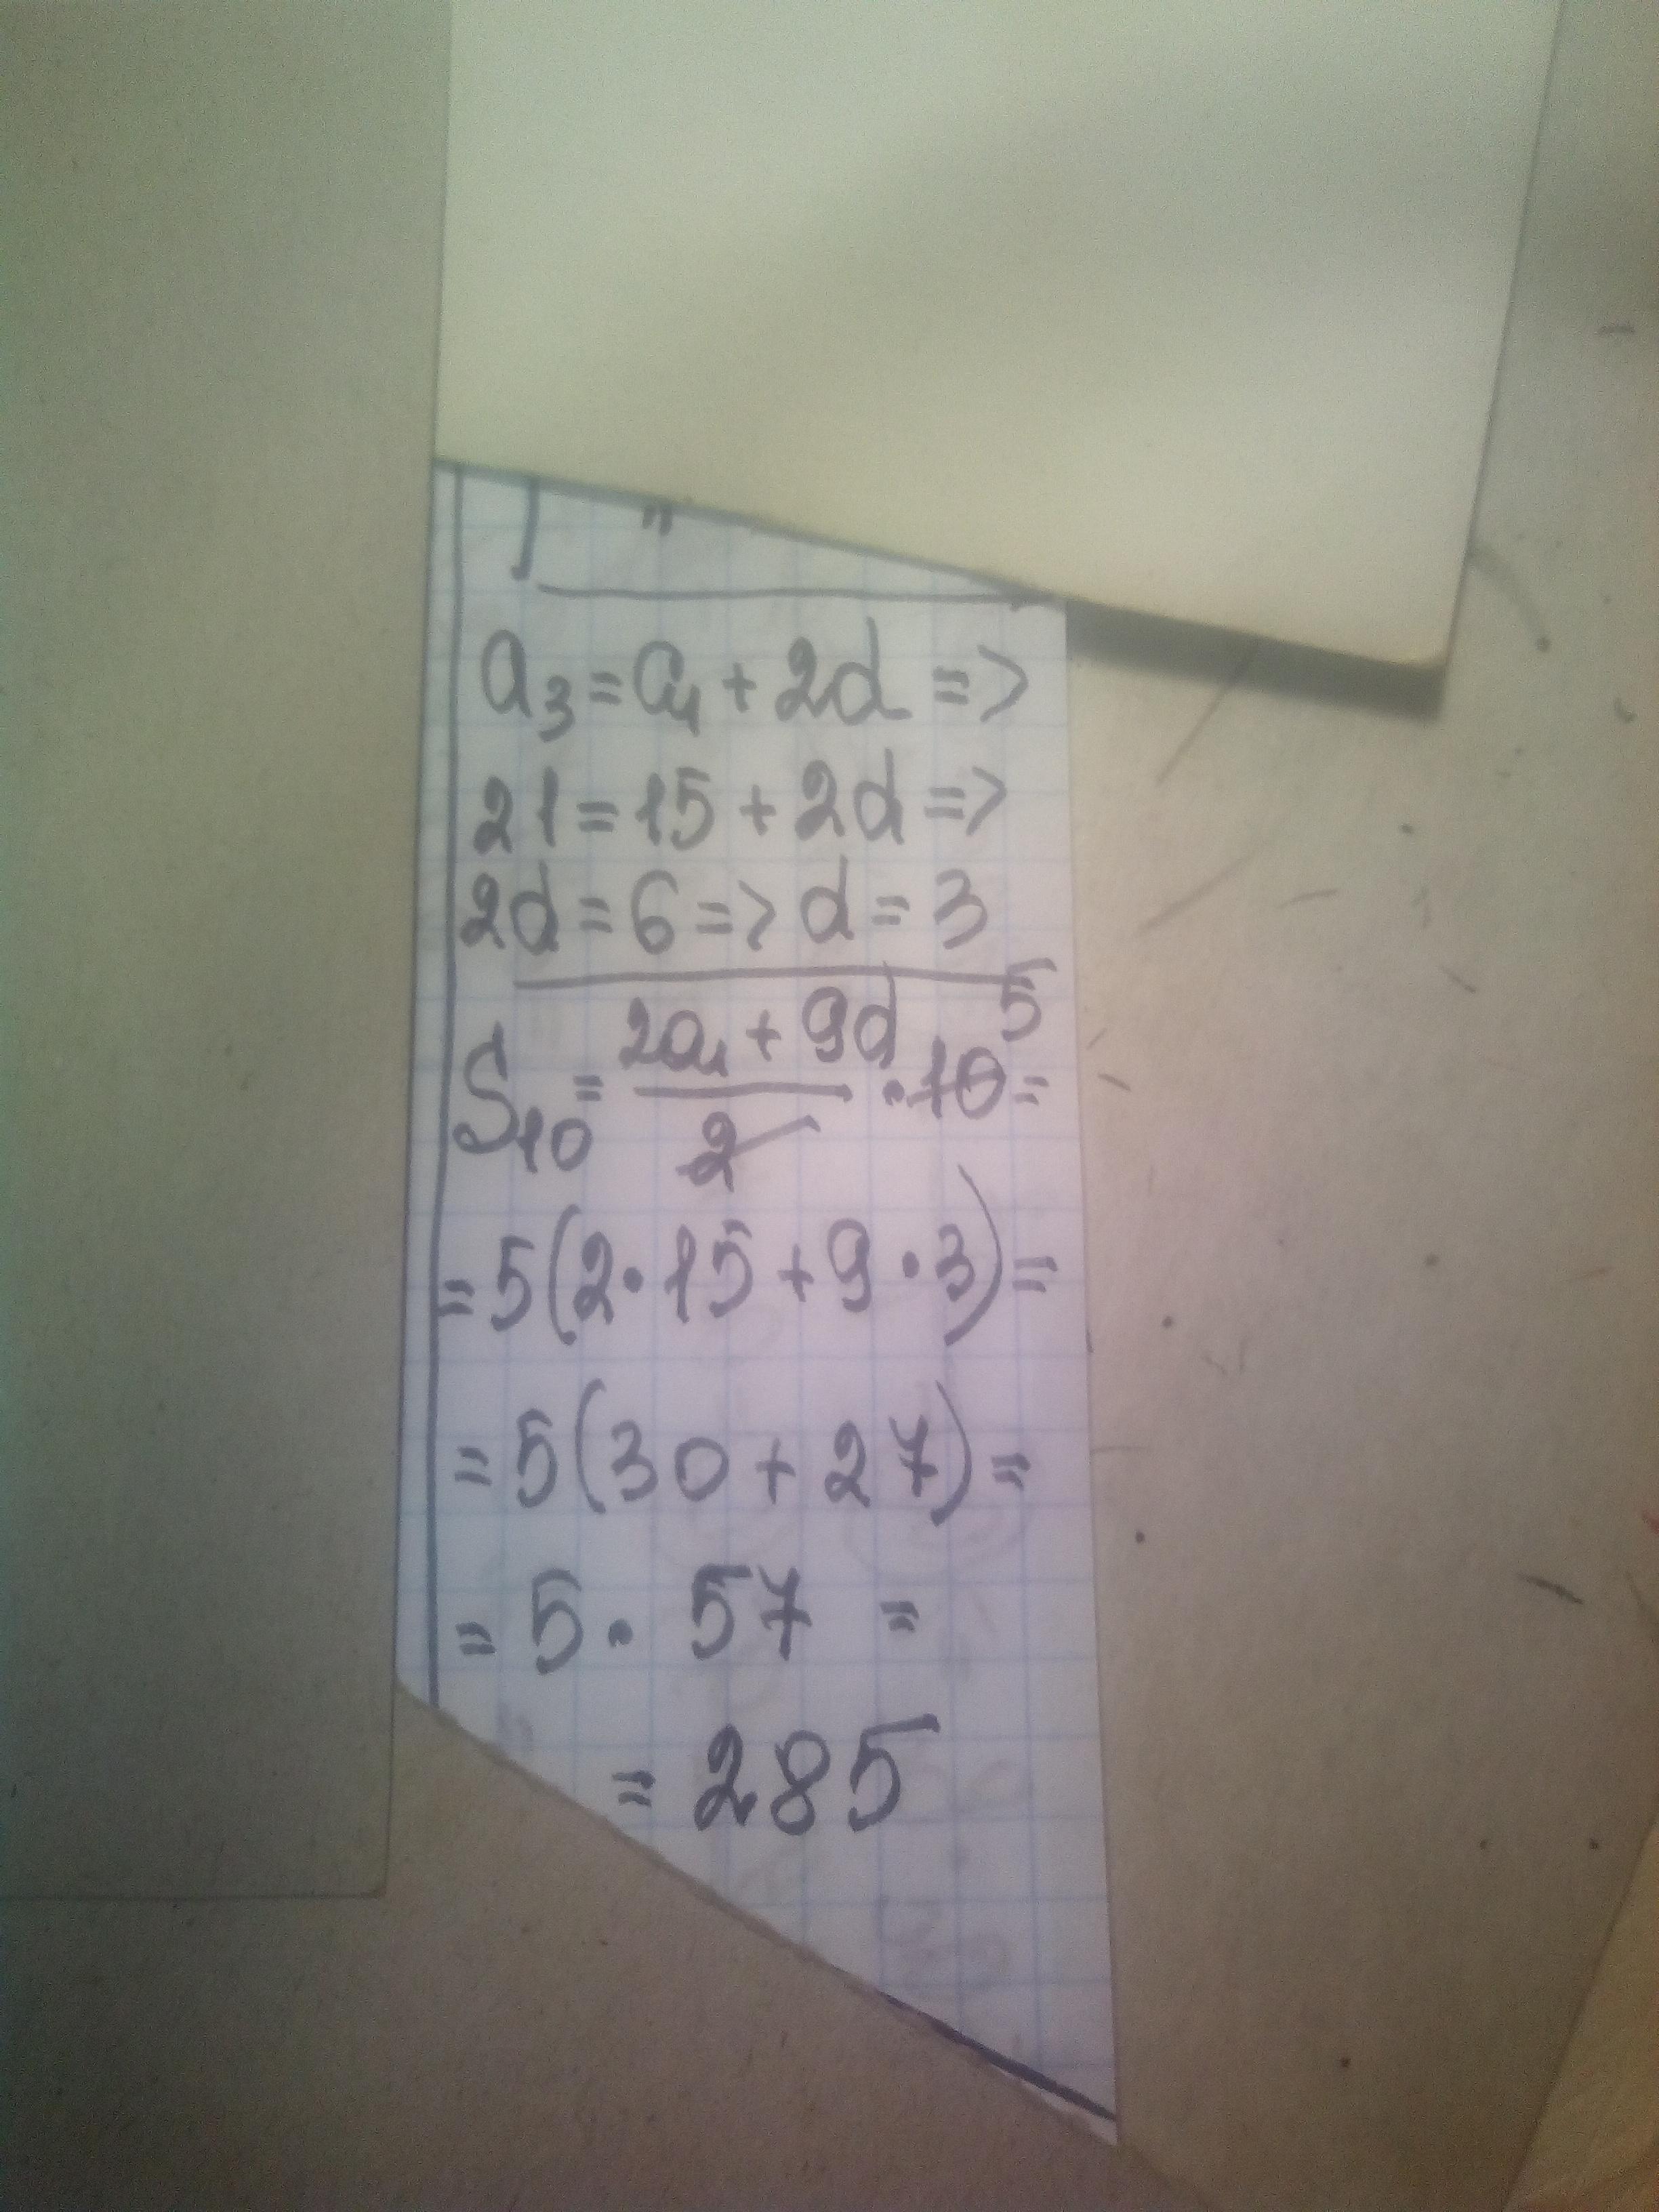 a₃ = a₁ + 2d =>
21 = 15 + 2d =>
2d = 6 => d = 3
S₁₀ = (2a₁ + 9d)/2 · 10 ⁵ =
= 5(2·15 + 9·3) =
= 5(30 + 27) =
= 5 · 57 =
= 285